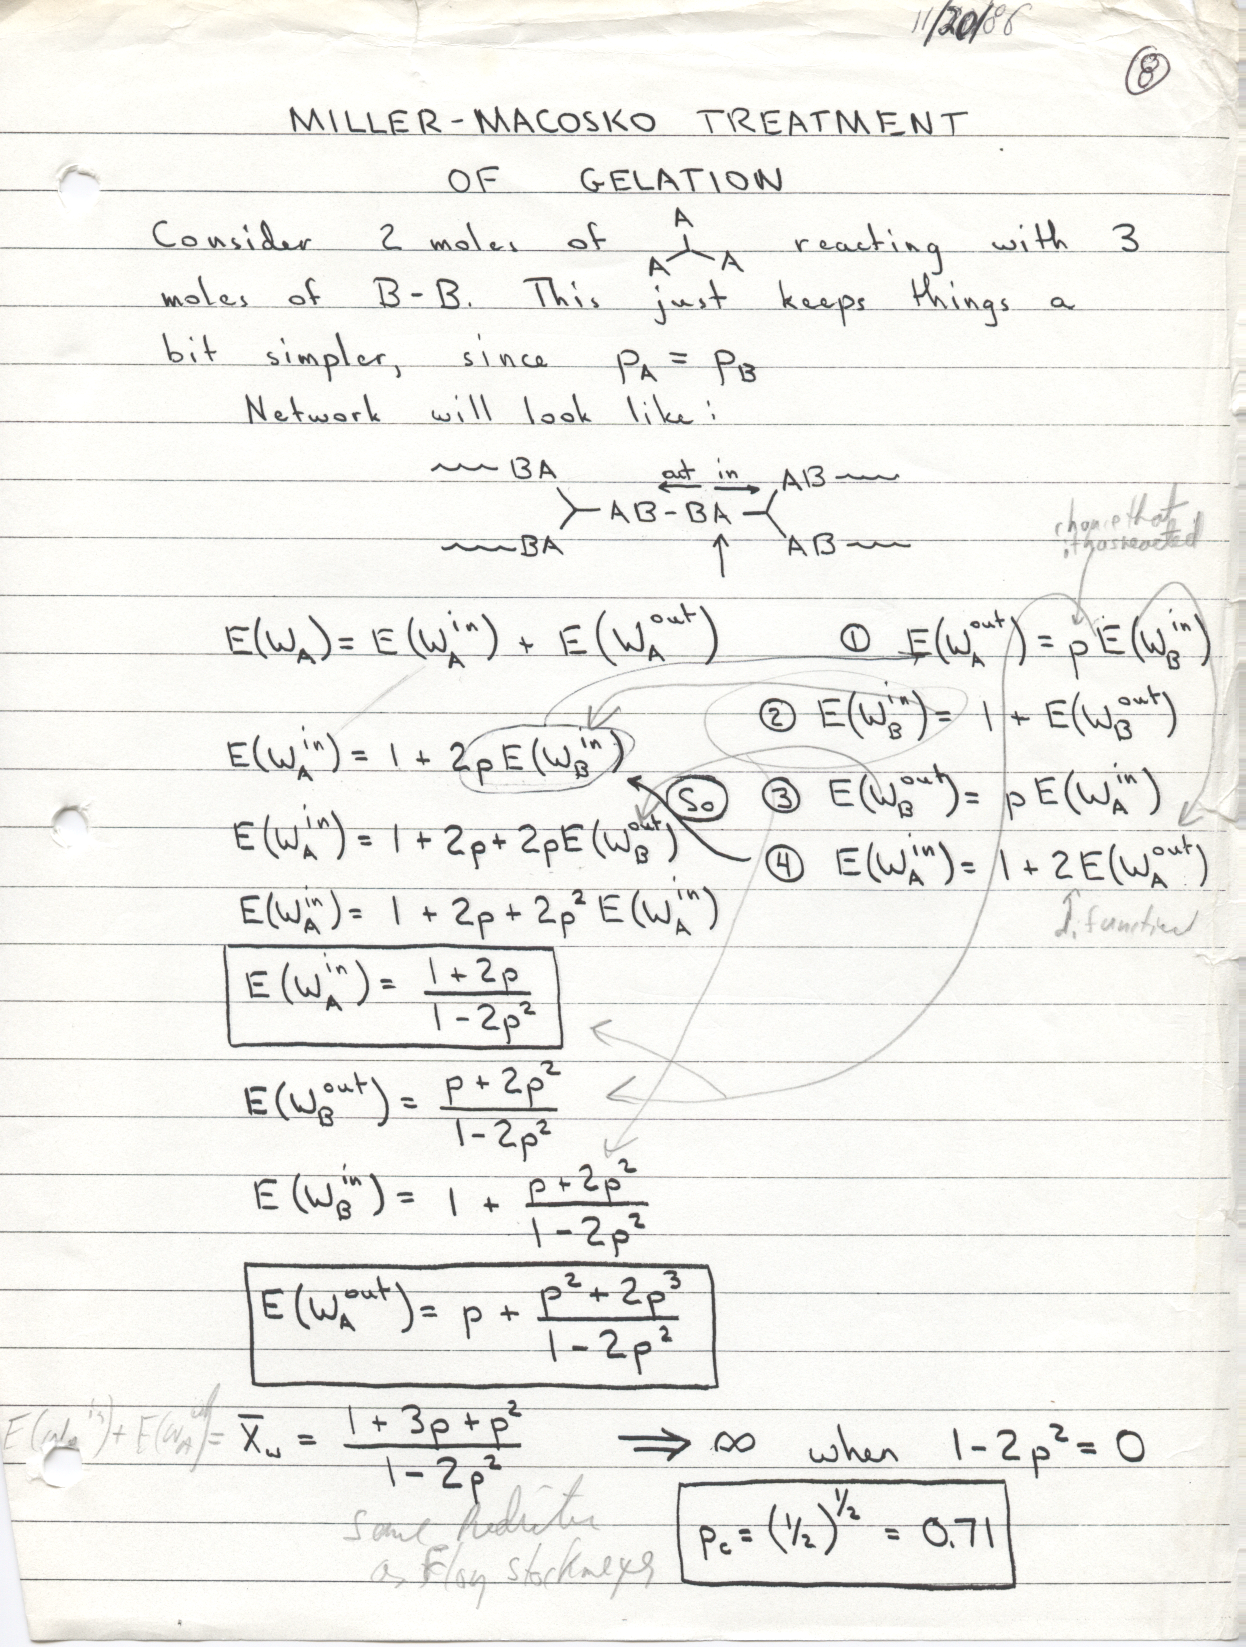 11/20/86
8
MILLER-MACOSKO TREATMENT
OF GELATION
A
Consider 2 moles of reacting with 3
A A
moles of B-B. This just keeps things a
bit simpler, since p_A = p_B
Network will look like:
BA out in AB
AB-BA
BA AB
chance that
it has reacted
E(W_A) = E(W_A^in) + E(W_A^out) ① E(W_A^out) = pE(W_B^in)
② E(W_B^in) = 1 + E(W_B^out)
E(W_A^in) = 1 + 2pE(W_B^in)
So ③ E(W_B^out) = pE(W_A^in)
E(W_A^in) = 1 + 2p + 2pE(W_B^out)
④ E(W_A^in) = 1 + 2E(W_A^out)
E(W_A^in) = 1 + 2p + 2p² E(W_A^in)
E(W_A^in) = (1 + 2p)/(1 - 2p²)
E(W_B^out) = (p + 2p²)/(1 - 2p²)
E(W_B^in) = 1 + (p + 2p²)/(1 - 2p²)
E(W_A^out) = p + (p² + 2p³)/(1 - 2p²)
E(W_A^in) + E(W_A^out) = X̄_w = (1 + 3p + p²)/(1 - 2p²) ⟹ ∞ when 1 - 2p² = 0
p_c = (1/2)^1/2 = 0.71
Same
as Flory Stockmeyer